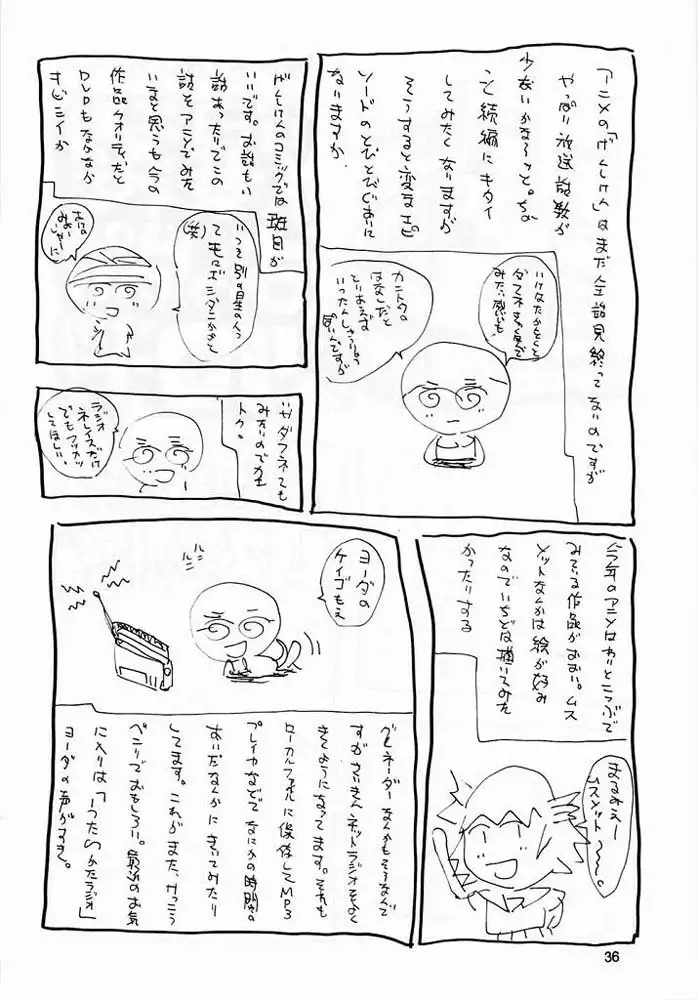 「アニメの「げんしけん」はまだ全話見終ってないのですが
やっぱり放送話数が
少ないかな〜ッと。ちな
こと続編にキタイ
してみたくなりますが
そうすると変なエピ
ソードのとびとびぐあいに
なりますか
ダフネまで
みたい感じも
カニトクの
はなしだと
とりあえず
いったんしゅうりょう
らしいんですが
げんしけんのコミックでは斑目が
いいです。お話もいい
話あったりでこの
話をアニメでみた
いまと思うも今の
作品クオリティだと
DVDもなかなか
キビシイか
いっそ別の星の人っ
て
(笑)
いやダフネても
みたいので
トク。
ラジオ
ネレイズだけ
でもフッカツ
してほしい。
今年のアニメはわりとこつぶで
みている作品がおおい。ムス
メットなんかは絵が好み
なのでいちどは描いてみた
かったりする
まるみえー
ムスメット〜〜。
ヨーダの
ケイゴもえ
ルン
ルン
グレネーダーなんかもそうなんで
すがさいきんネットラジオをよく
きくようになってます。それも
ローカルファイルに保存してMP3
プレイヤなどでなにかの時間の
あいだなんかにきいてみたり
してます。これがまた、けっこう
ベンリでおもしろい。最近のお気
に入りは「いつだってかたラジオ」
ヨーダの声がすき。
36